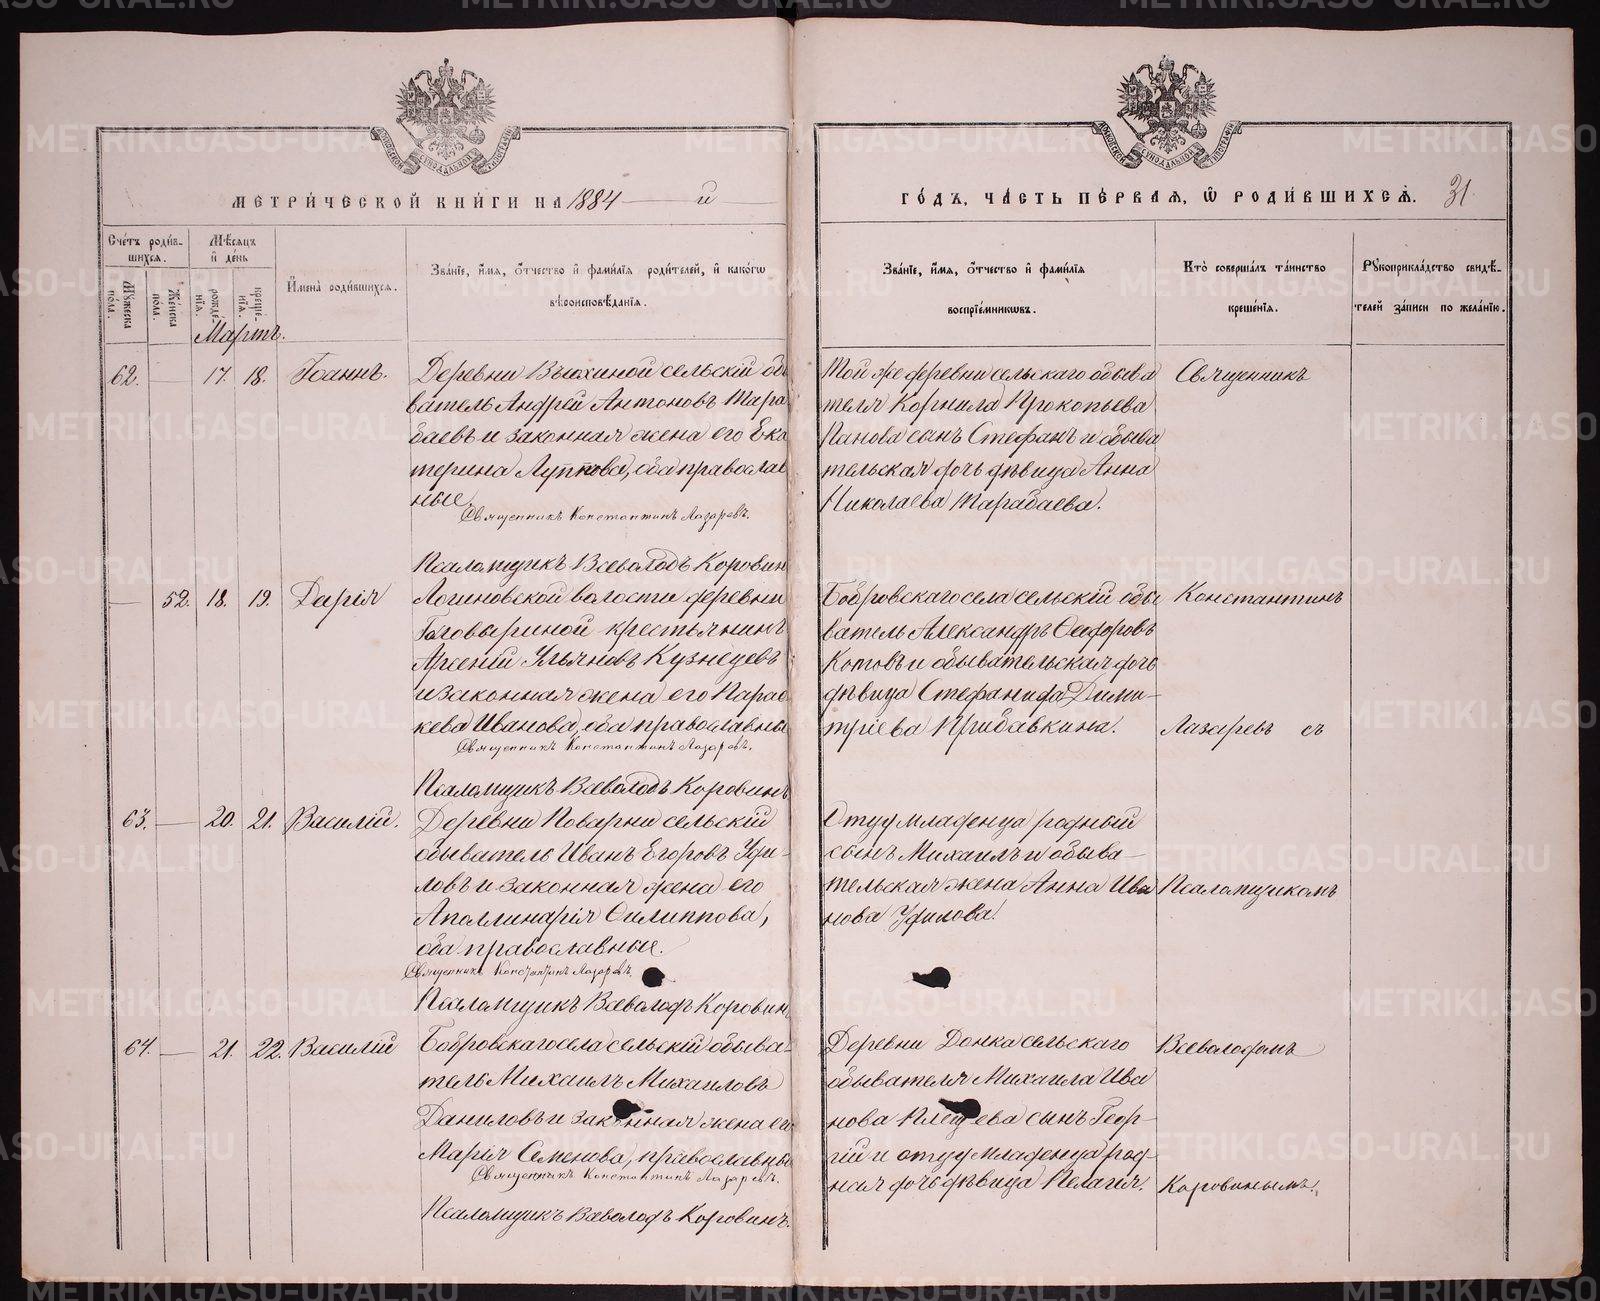 МЕТРИ́ЧЕСКОЙ КНИ́ГИ НА 1884 й
ГО́ДЪ, ЧА́СТЬ ПЕ́РВАЯ, Ѡ РОДИ́ВШИХСЯ. 31
Сче́тъ роди́в-
шихся.
Му́жеска по́ла.
Же́нска по́ла.
Мѣ́сяцъ
и де́нь
рожде́-
нїя.
креще́-
нїя.
Имена̀ роди́вшихся.
Зва́нїе, и́мя, о́тчество и фами́лїя роди́телей, и како́гѡ
вѣроисповѣ́данїя.
Зва́нїе, и́мя, о́тчество и фами́лїя
воспрїе́мникѡвъ.
Кто̀ соверша́лъ та́инство
креще́нїя.
Рукоприкла́дство свидѣ́-
телей за́писи по жела́нїю.
Мартъ.
62. 17. 18. Іоаннъ.
Деревни Вьюхиной сельскій обы
ватель Андрей Антоновъ Тара
баевъ и законная жена его Ека
терина Луппова, оба православ
ные.
Священникъ Константинъ Лазаревъ.
Псаломщикъ Всеволодъ Коровин
Той же деревни сельскаго обыва
теля Корнила Прокопьева
Панова сынъ Стефанъ и обыва
тельская дочь дѣвица Анна
Николаева Тарабаева.
Священникъ
52. 18. 19. Дарія
Логиновской волости деревни
Говыриной крестьянинъ
Арсеній Ульяновъ Кузнецевъ
и законная жена его Парас
кева Иванова, оба православны
Священникъ Константинъ Лазаревъ.
Псаломщикъ Всеволодъ Коровинъ
Бобровскаго села сельскій обы
ватель Александръ Ѳедоровъ
Котовъ и обывательская дочь
дѣвица Стефанида Дими-
тріева Прибавкина.
Константинъ
Лазаревъ съ
63. 20. 21. Василій.
Деревни Поварни сельскій
обыватель Иванъ Егоровъ Уфи-
ловъ и законная жена его
Аполлинарія Филиппова,
оба православные.
Священникъ Константинъ Лазаревъ.
Псаломщикъ Всеволодъ Коровин
Отцу младенца родный
сынъ Михаилъ и обыва-
тельская жена Анна Ива
нова Уфилова.
Псаломщикомъ
64. 21. 22. Василій
Бобровскаго села сельскій обыва-
тель Михаилъ Михаиловъ
Даниловъ и законная жена его
Марія Семенова, православны
Священникъ Константинъ Лазаревъ.
Псаломщикъ Всеволодъ Коровинъ.
Деревни Донка сельскаго
обывателя Михаила Ива
нова Плещева сынъ Геор-
гій и отцу младенца род-
ная дочь дѣвица Пелагія.
Всеволодомъ
Коровинымъ.
METRIKI.GASO-URAL.RU